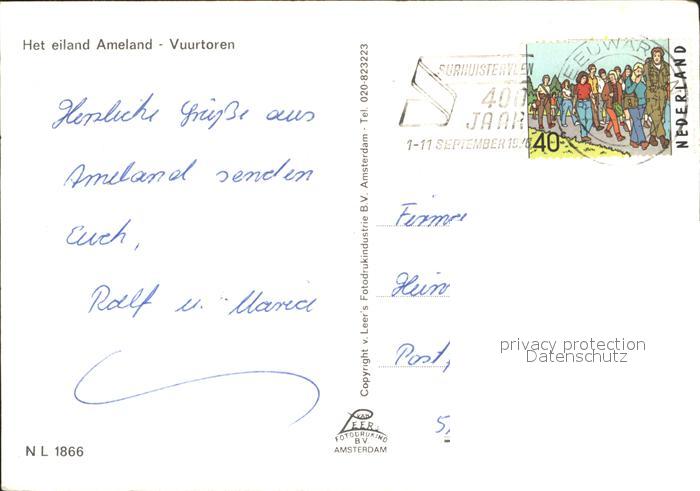 Het eiland Ameland - Vuurtoren
Herzliche Grüße aus
Ameland senden
Euch,
Ralf u. Maria
N L 1866
Copyright v. Leer's Fotodrukindustrie B.V. Amsterdam - Tel. 020-823223
VAN
LEER
FOTODRUKIND
B.V.
AMSTERDAM
SURHUISTERVEEN
400
JAAR
1-11 SEPTEMBER
LEEUWAR
40
NEDERLAND
Firma
Hein
Post,
5,
privacy protection
Datenschutz